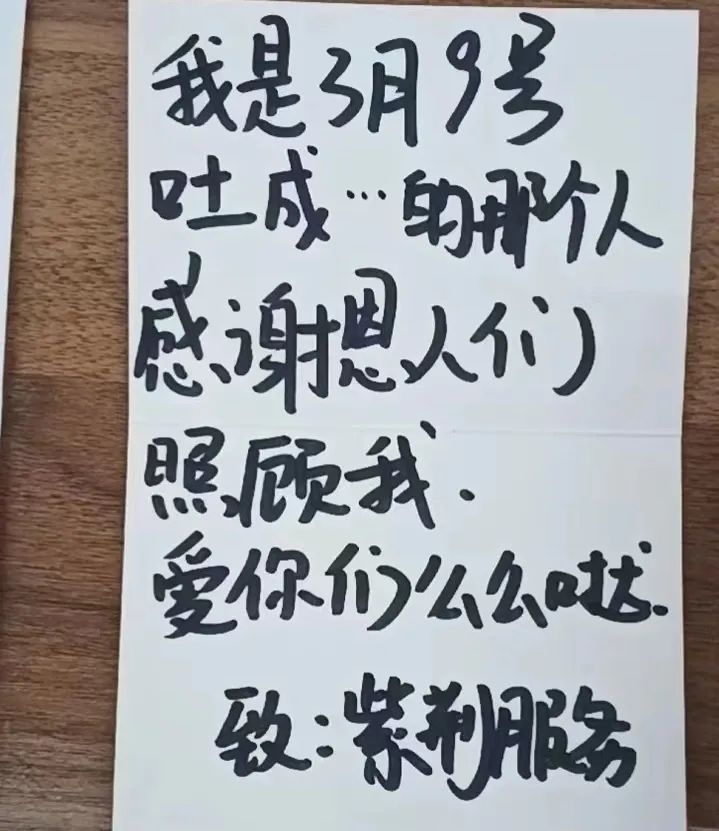 我是3月9号
吐成…的那个人
感谢恩人们
照顾我.
爱你们么么哒.
致:紫荆服务